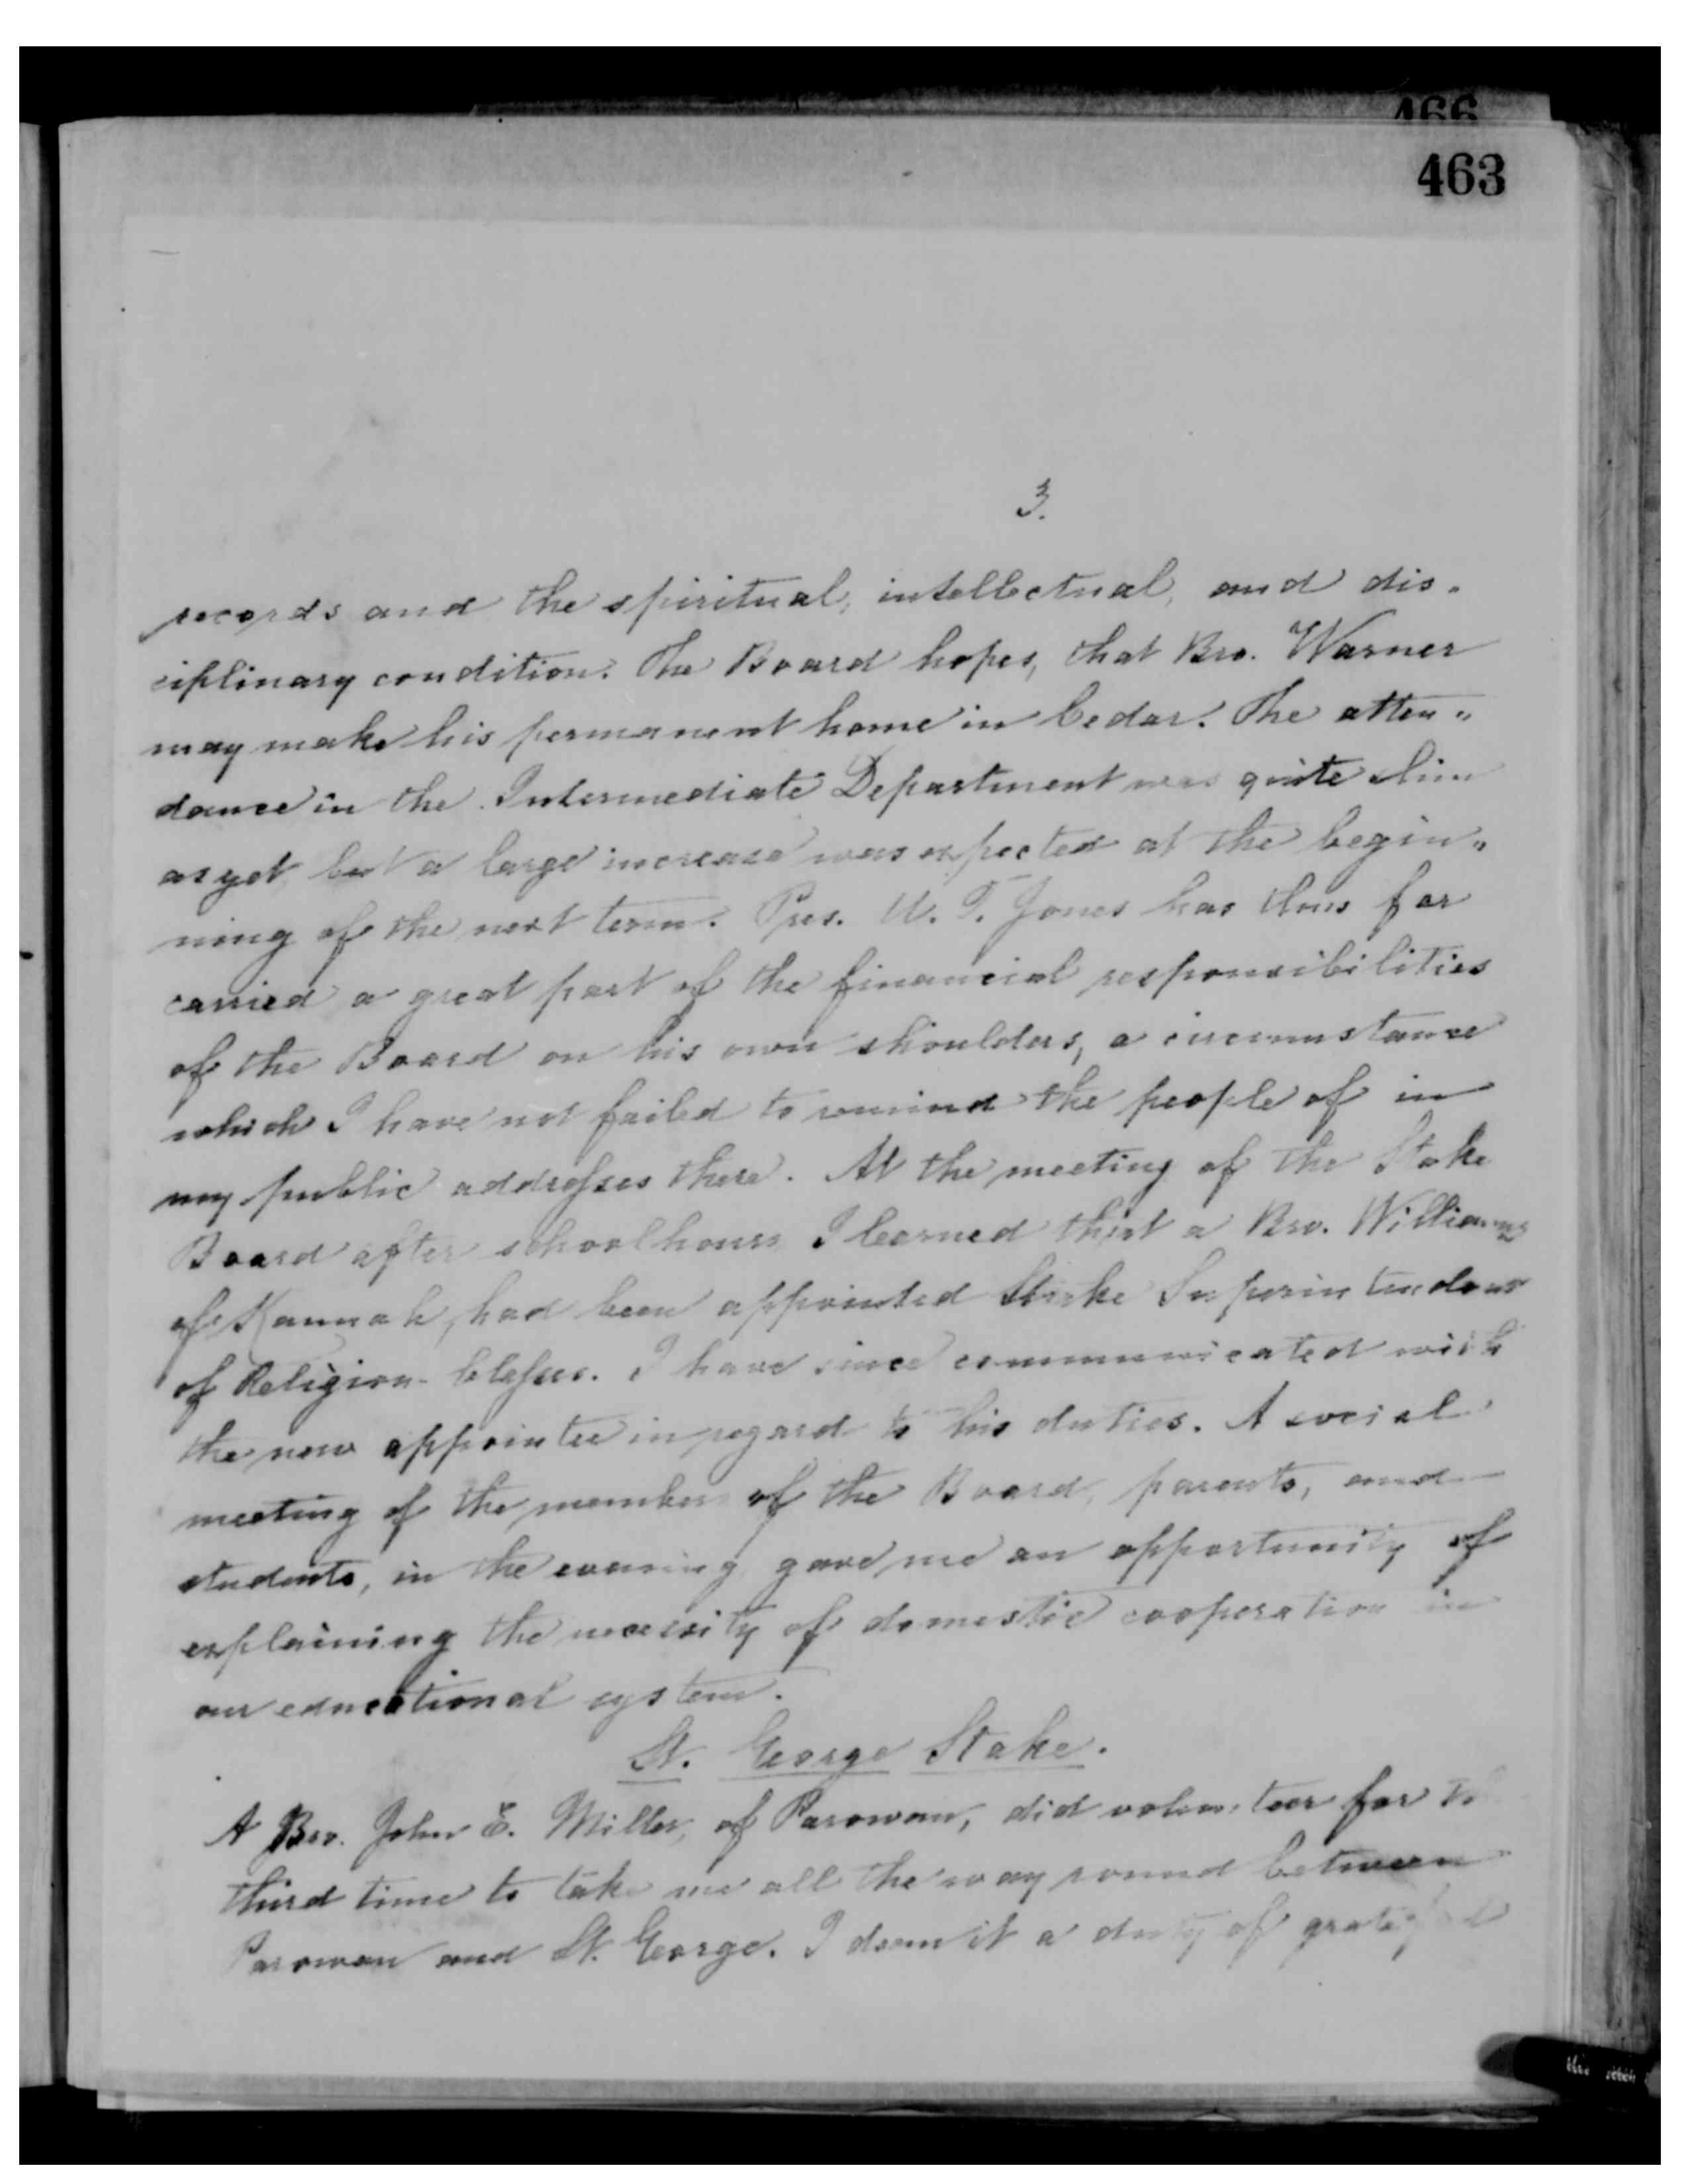 466
463
3.
records and the spiritual, intellectual, and dis-
ciplinary condition. The Board hopes, that Bro. Warner
may make his permanent home in Cedar. The atten-
dance in the Intermediate Department was quite slim
as yet but a large increase was expected at the begin-
ning of the next term. Pres. U. T. Jones has thus far
carried a great part of the financial responsibilities
of the Board on his own shoulders, a circumstance
which I have not failed to remind the people of in
my public addresses there. At the meeting of the Stake
Board after schoolhours I learned that a Bro. Williams
of Kannah, had been appointed Stake Superintendent
of Religion Classes. I have since communicated with
the new appointee in regard to his duties. A social
meeting of the members of the Board, parents, and
students, in the evening gave me an opportunity of
explaining the necessity of domestic cooperation in
our educational system.
St. George Stake.
A Bro. John E. Miller, of Parowan, did volunteer for
third time to take me all the way round between
Parowan and St. George. I deem it a duty of
this